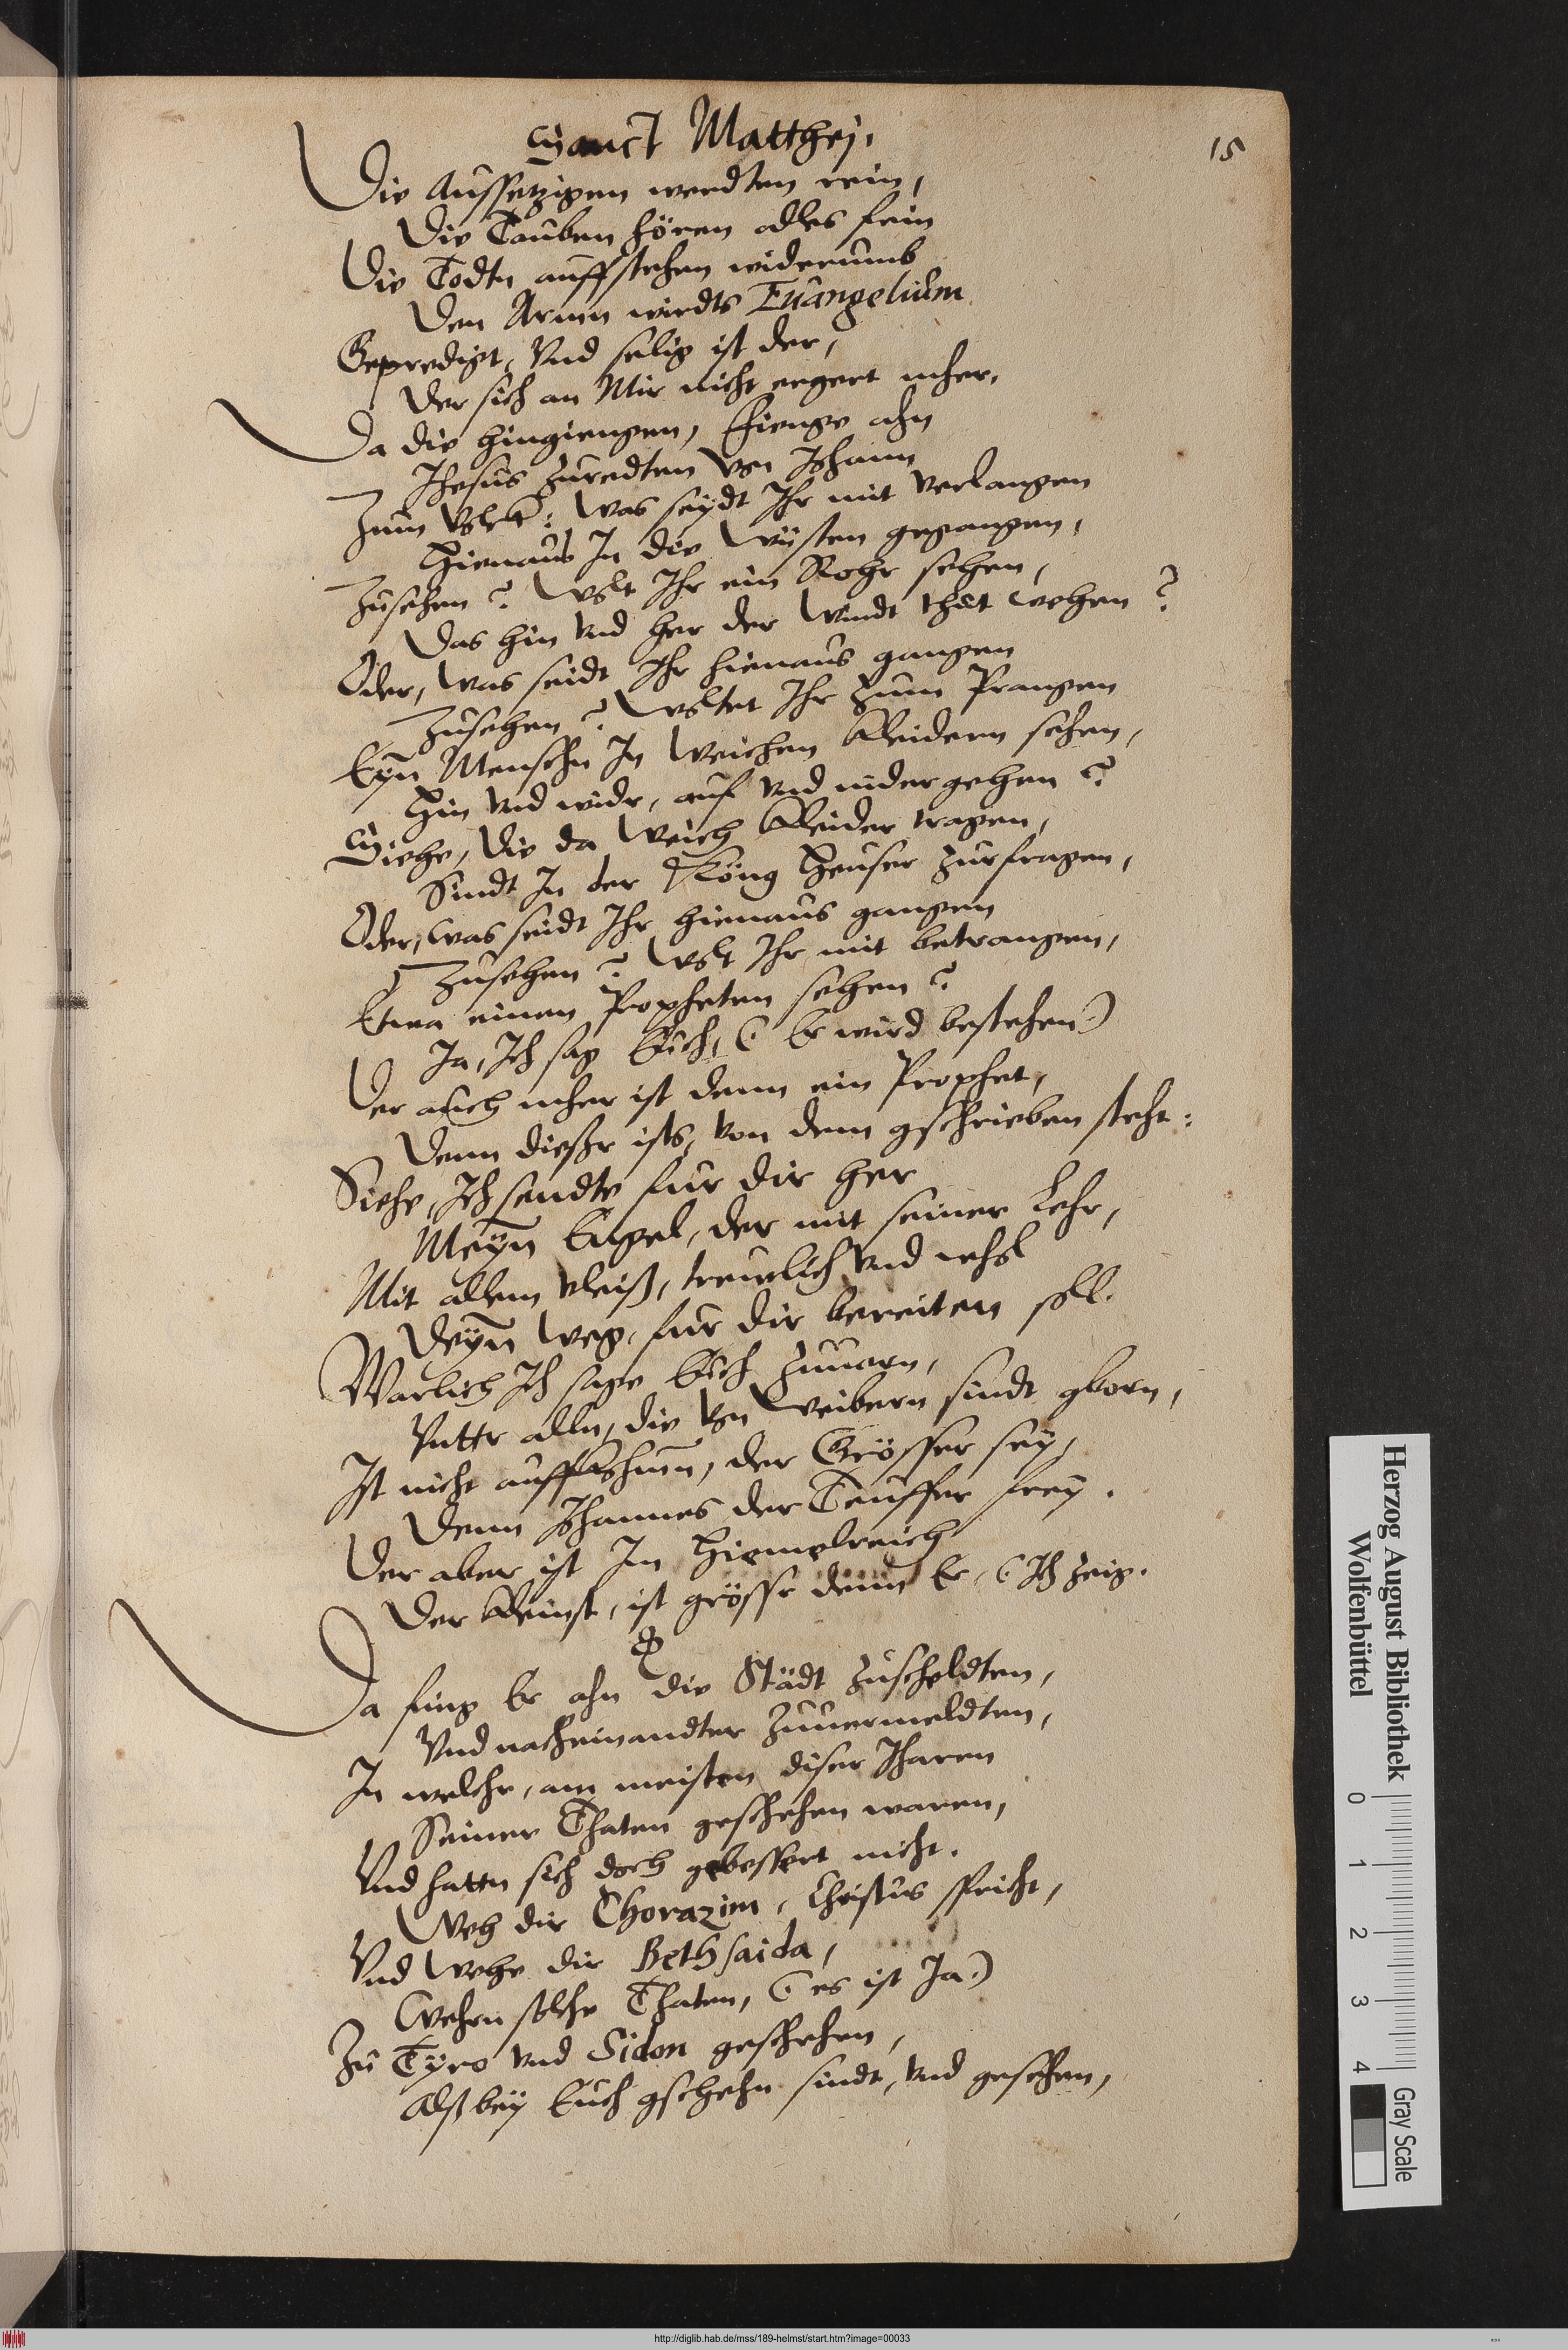 Sanct Matthej.
15
Die Aussetzigen werdten rein,
Die Tauben hören alles fein
Die Todtn auffstehen widerumb
Den Armn wirdts Euangelium
Gepredigt, Vnd selig ist der,
Der sich an Mir nicht ergert mher.
Da die hingiengen, fienge ahn
Jhesus zuredten von Johann
Zum Volck: Was seydt Jhr mit verlangen
Hienaus Jn die Wüsten gegangen,
Zusehen? Wolt Jhr ein Rohr sehen,
Das hin vnd her der Windt thet wehen?
Oder, Was seidt Jhr hienaus gangen
Zusehen? Woltet Jhr zum Prangen
Eyn Menschn Jn Weichen Kleidern sehen,
Hin vnd widr, auf vnd nider gehen?
Siehe, Die da Weich Kleider tragen,
Sindt Jn der Köng Heuser zurfragen,
Oder, was seidt Jhr hienaus gangen
Zusehen? Wolt Jhr mit betrangen,
Etwa einen Propheten sehen?
Ja, Jch sag Euch, (Er wird bestehen)
Der auch mher ist denn ein Prophet,
Denn dießr ists, von dem gschrieben steht:
Siehe, Jch sendte fur dir her
Meyn Engel, der mit seiner Lehr,
Mit allem vleiß, treulich vnd wohl
Deyn Weg, fur dir bereiten soll.
Warlich Jch sage Euch zuuorn,
Vnttr alln, die von Weibern sindt gborn,
Jst nicht auffkohmn, der Grösser sey,
Denn Johannes der Teuffer frey.
Der aber ist Jm Hiemelreich
Der Kleinst, ist grösser denn Er, (Jch zeig.
Da fing Er ahn die Städt zuscheldten,
Vnd nacheinandter zuuermeldten,
Jn welchr, am meisten diser Jharen
Seiner Thaten geschehen waren,
Vnd hattn sich doch gebessert nicht.
Weh dir Chorazim, Christus spricht,
Vnd Wehe dir Bethsaida,
Wehrn solche Thaten, (es ist Ja)
Zu Tyro vnd Sidon geschehen,
Alß bey Euch gschehn sindt, vnd gesehen,
Herzog August Bibliothek
Wolfenbüttel
0 1 2 3 4
Gray Scale
http://diglib.hab.de/mss/189-helmst/start.htm?image=00033